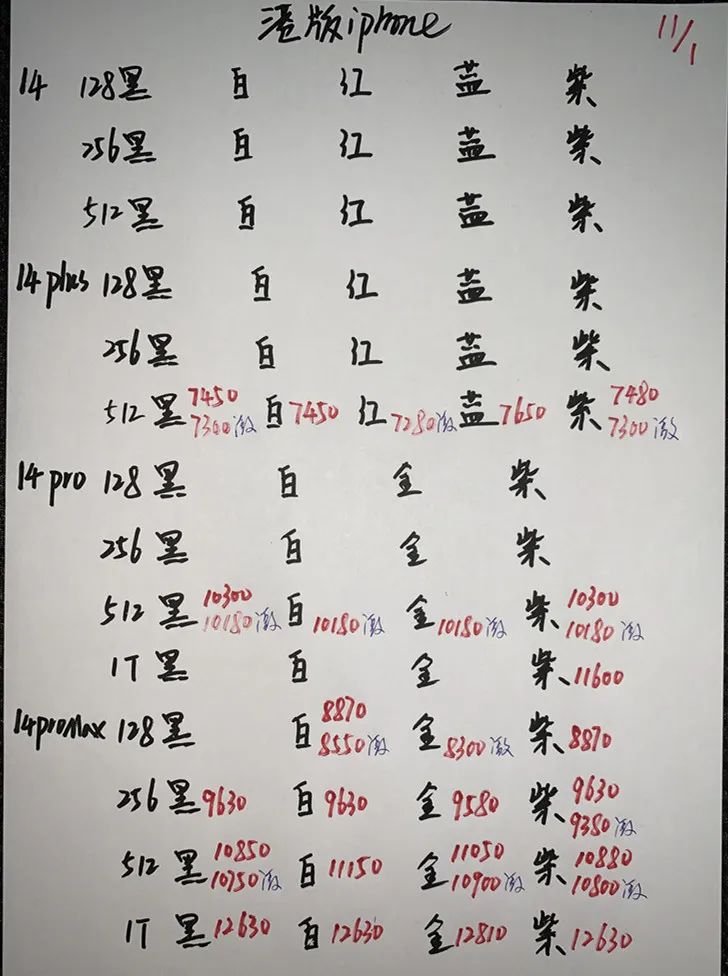 港版iphone 11/1
14 128黑 白 红 蓝 紫
256黑 白 红 蓝 紫
512黑 白 红 蓝 紫
14 plus 128黑 白 红 蓝 紫
256黑 白 红 蓝 紫
512黑 7450 7300激 白 7450 红 7280激 蓝 7650 紫 7480 7300激
14 pro 128黑 白 金 紫
256黑 白 金 紫
512黑 10300 10180激 白 10180激 金 10180激 紫 10300 10180激
1T黑 白 金 紫 11600
14 proMax 128黑 白 8870 8550激 金 8300激 紫 8870
256黑 9630 白 9630 金 9580 紫 9630 9380激
512黑 10850 10750激 白 11150 金 11050 10900激 紫 10880 10800激
1T黑 12630 白 12630 金 12810 紫 12630